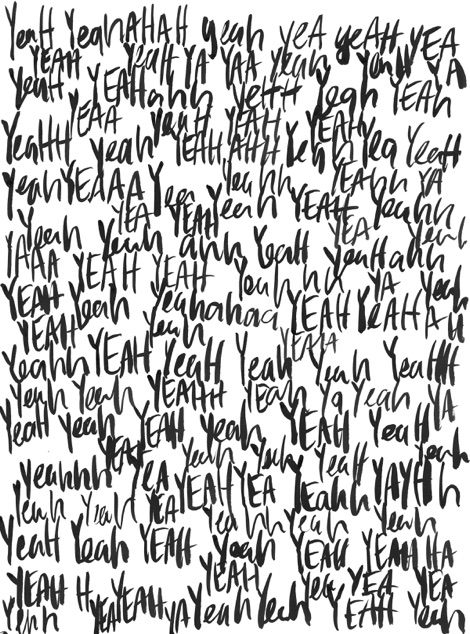 YeaH YeahAHAH yeah yeA yeAH YEA
YEAH YeaH YA YAA Yeah YA
YeaH YEAHahh YeHH Yeah YEAh
YEAA YeaH YEAH YEAH
YeaHH Yeah YEAH AHH Yeah Yea YeaH
YeahYEAAA Yea Yeahhh YEAhh YA
YEA YEAH Yeah YEAH Yeahh
Yeah Yeah ahh YeaH YEA Yeah
YAAA YEAH YEAH YeaHahh
YEAH Yeah Yeahahaa YEAH YEAH YA Yeah
YEAH Yeah YEAH
Yeahh YEAH YeaH Yeah Yeah YeaHHH
Yeah Yeah YEAHH YEAh Ya Yeah YA
YeaH Yeah YEAH Yeah YEAH YeaH
YEAH Yeah Yeah YeaH Yeah
Yeahhhh YEA YEAH YEA YEahh YAYHh
Yeah Yeah YEA Yeahhh Yeah Yeah
YeaH Yeah YEAH Yeah YEAH YEAHHA
YEAH
YEAH H YEAH Yea YEA YEA
Yeah YEAH YA Yeah Yeah YEAH Yeah